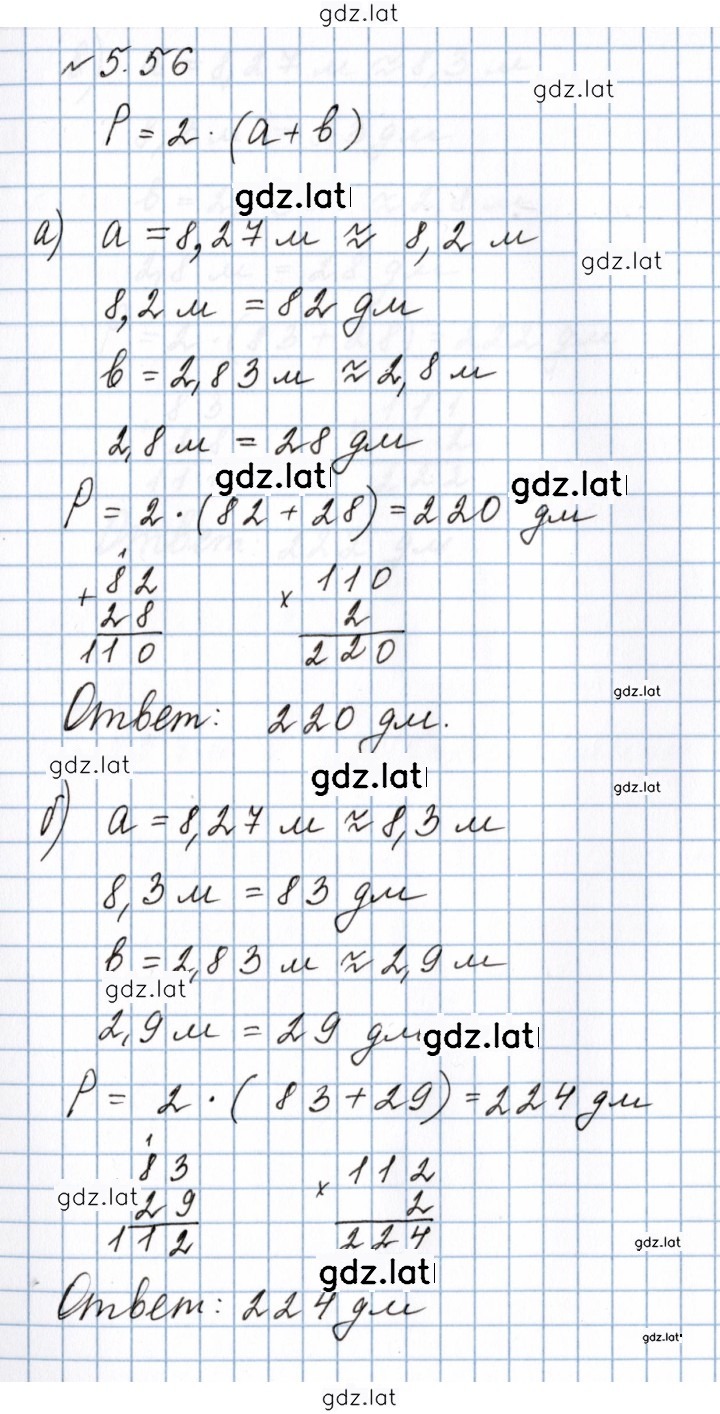 gdz.lat
№ 5.56
gdz.lat
P = 2 · (a + b)
gdz.lat
а) a = 8,27 м ≈ 8,2 м
gdz.lat
8,2 м = 82 дм
b = 2,83 м ≈ 2,8 м
2,8 м = 28 дм
gdz.lat gdz.lat
P = 2 · (82 + 28) = 220 дм
1
+ 82 × 110
28 2
110 220
gdz.lat
Ответ: 220 дм.
gdz.lat gdz.lat gdz.lat
б) a = 8,27 м ≈ 8,3 м
8,3 м = 83 дм
b = 2,83 м ≈ 2,9 м
gdz.lat
2,9 м = 29 дм gdz.lat
P = 2 · (83 + 29) = 224 дм
1
83 × 112
gdz.lat 29 2
112 224
gdz.lat
gdz.lat
Ответ: 224 дм
gdz.lat
gdz.lat